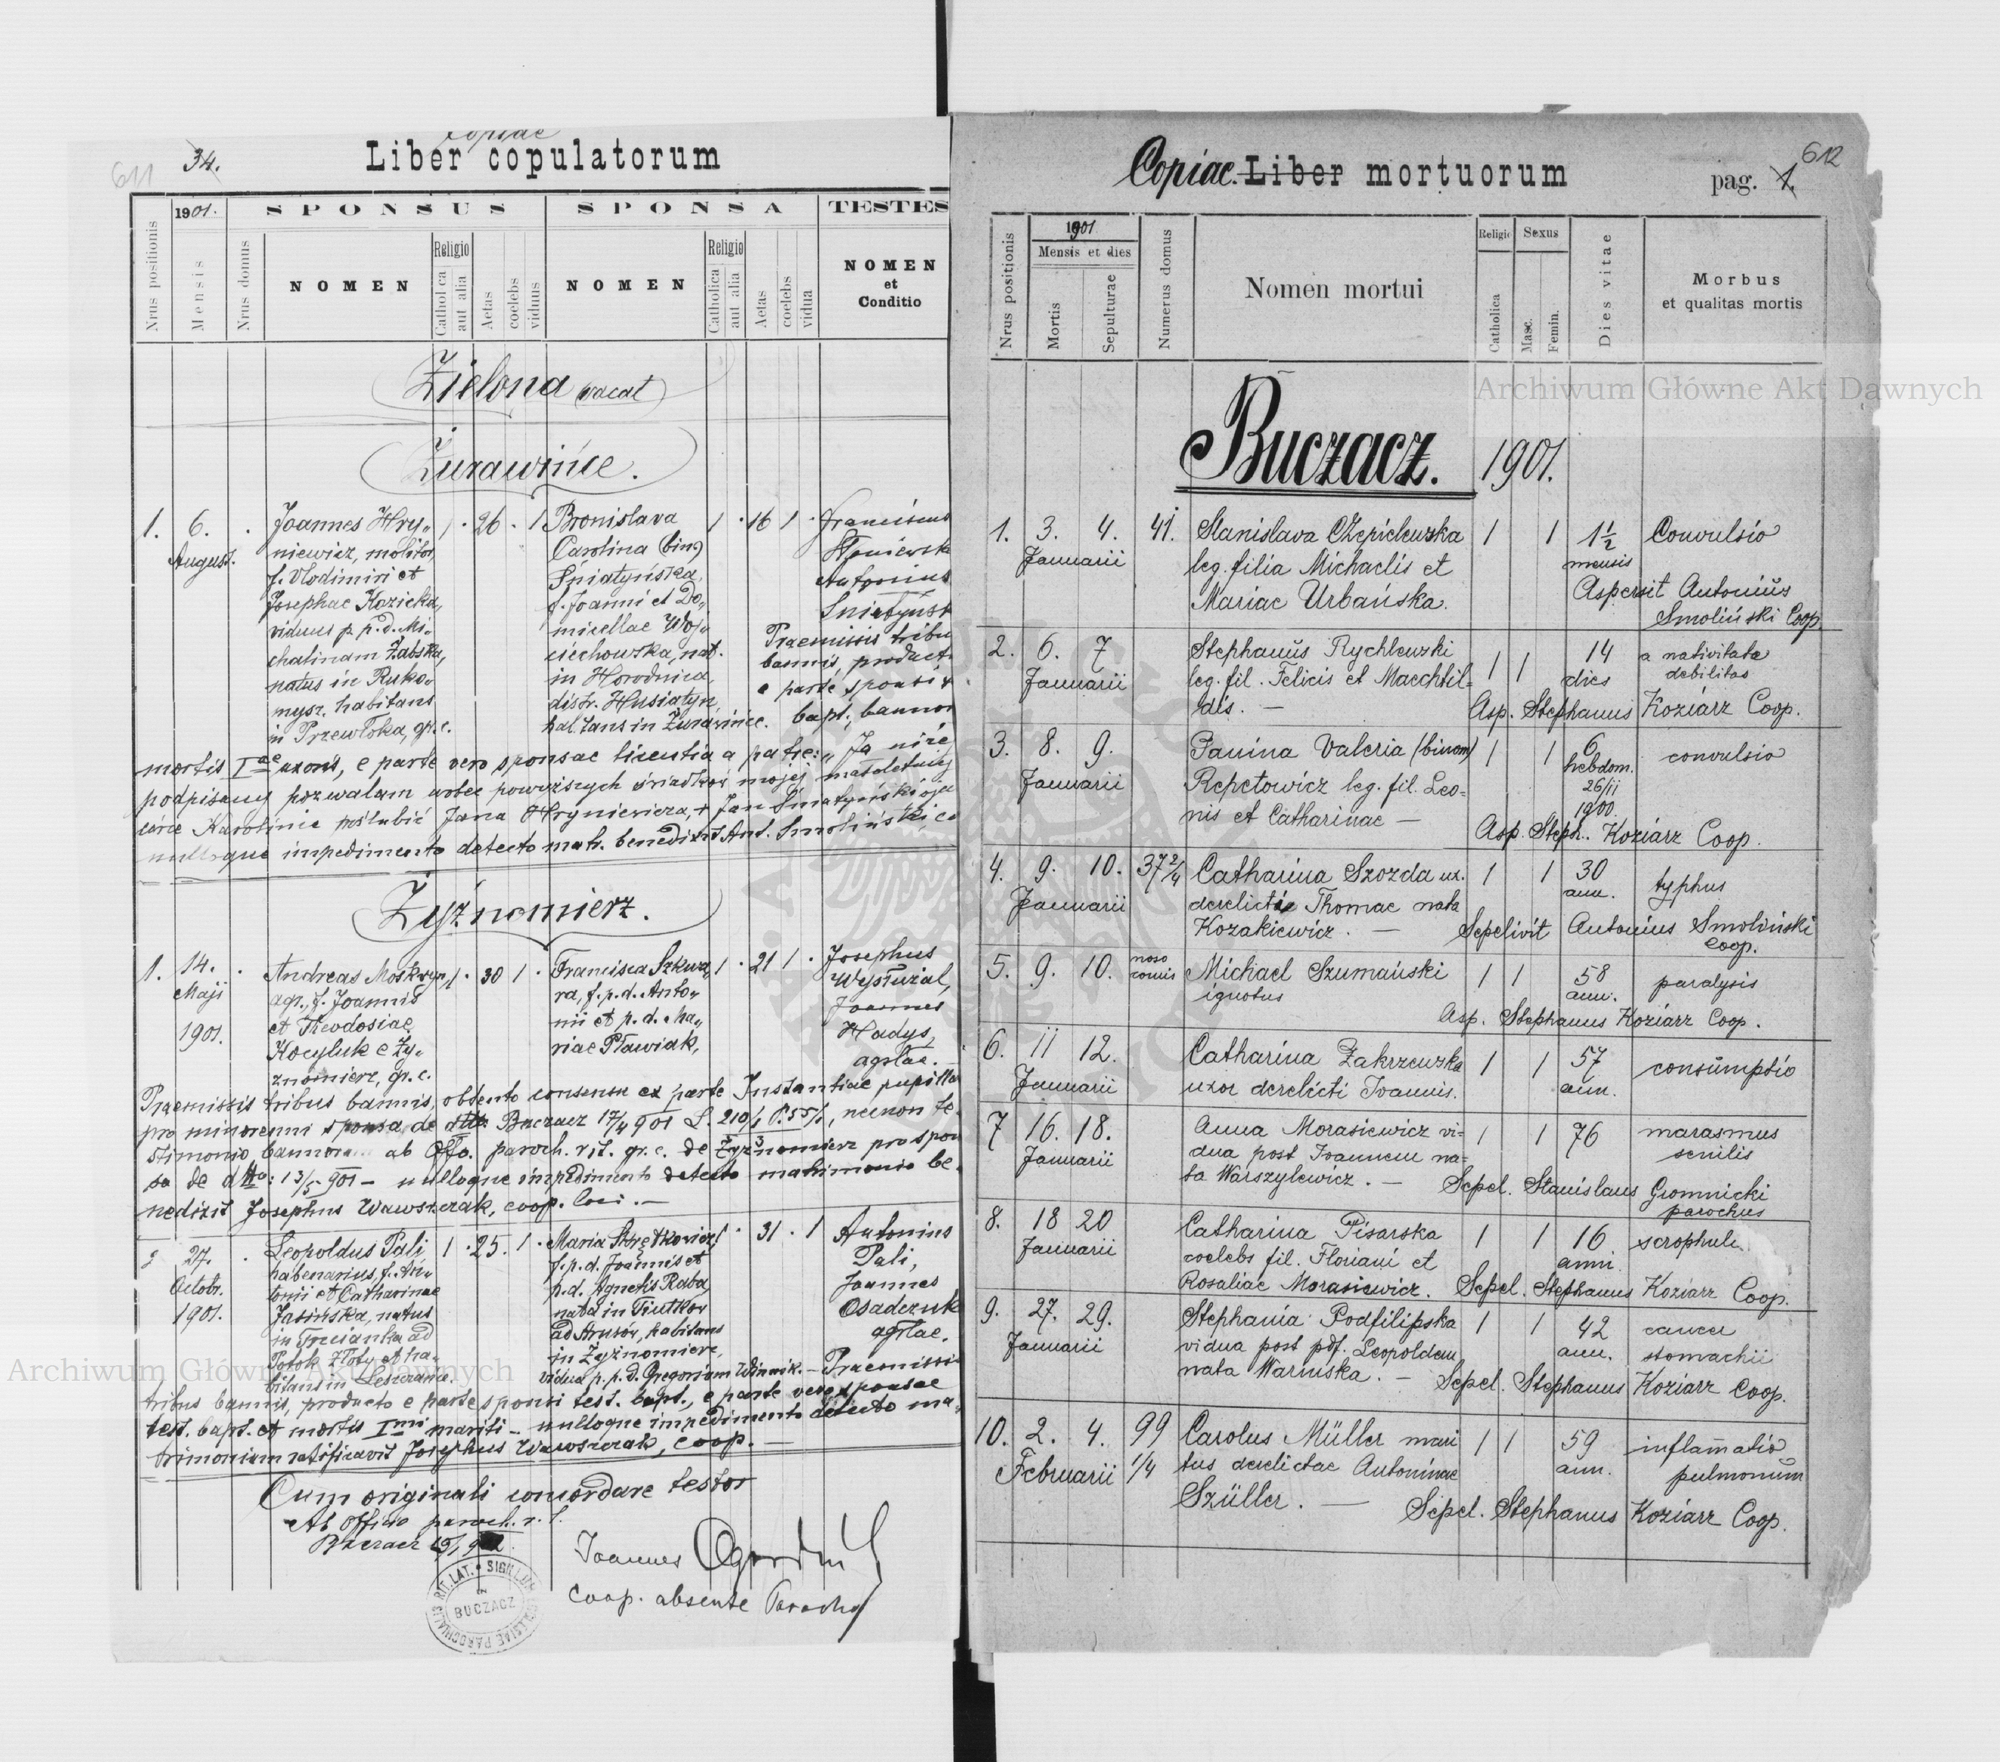 611
34.
Copiae
Liber copulatorum
Nrus positionis
1901.
Mensis
Nrus domus
SPONSUS
NOMEN
Religio
Catholica
aut alia
Aetas
coelebs
viduus
SPONSA
NOMEN
Religio
Catholica
aut alia
Aetas
coelebs
vidua
TESTES
NOMEN
et
Conditio
Zielona (vacat)
Żurawińce.
1. 6. August.
Joannes Hry„
niewicz, molitor,
f. Vlodimiri et
Josephae Kozicka,
viduus p. p. d. Mi„
chalinam Żabska,
natus in Ruko„
mysz, habitans
in Przewłoka, gr. c.
1 . 26 . 1
Bronislava
Carolina (bin.)
Śniatyńska,
f. Joanni et Do„
micellae Woj„
ciechowska, nat.
in Horodnica,
distr. Husiatyn,
habitans in Żurawińce.
1 . 16 1 .
Franciscus
Antonius
Śniatyńsk
Praemissis tribu
bannis, product
e parte sponsi
bapt., bannor
mortis Iae uxoris, e parte vero sponsae licentia a patre: „Ja niżej
podpisany pozwalam wobec powyższych świadków mojej małoletniej
córce Karolinie poślubić Jana Hryniewicza, + Jan Śniatyński ojc
nulloque impedimento detecto matr. benedixit Ant. Smoliński, co
Żyżnomierz.
1. 14. Maji 1901.
Andreas Moskwyn,
agr., f. Joannis
et Theodosiae
Kocyluk e Ży„
żnomierz, gr. c.
1 . 30 1 .
Francisca Szkwa„
ra, f. p. d. Anto„
nii et p. d. Ma„
riae Pławiak,
1 . 21 1 .
Josephus
Wystuzial,
Joannes
Hudys,
agrlae.
Praemissis tribus bannis, obtento consensu ex parte Instantiae pupilla
pro minorenni sponsa de dtto Buczacz 17/4 901 L. 210/1 P. 55/1, necnon te„
stimonio bannorum ab Offo. paroch. rit. gr. c. de Żyżnomierz pro spon
so de dtto: 13/5 901 – nulloque impedimento detecto matrimonio be„
nedixit Josephus Wawszczak, coop. loci. —
2 27. Octobr. 1901.
Leopoldus Pali
habenarius, f. An„
tonii et Catharinae
Jasińska, natus
in Trścianka ad
Potok Złoty et ha„
bitans in Leszczańce.
1 . 25 . 1 .
f. p. d. Joannis et
p. d. Agnetis Raba,
nata in
ad Strusów, habitans
in Żyżnomierz,
vidua p. p. d. Gregorium Winnik. – Praemissis
1 . 31 . 1
Antonius
Pali,
Joannes
Osadczuk
agrlae.
tribus bannis, producto e parte sponsi test. bapt., e parte vero sponsae
test. bapt. et mortis Imi mariti – nulloque impedimento detecto ma„
trimonium ratificavit Josephus Wawszczak, coop. —
Cum originali concordare testor
Ab Officio paroch. r. l.
Buczacz
Joannes
Coop. absente Parocho
RIT. LAT. SIGILLUM ECCLESIAE PAROCHIALIS
IN
BUCZACZ
612
Copiae. Liber mortuorum
pag. 1.
Nrus positionis
1901
Mensis et dies
Mortis
Sepulturae
Numerus domus
Nomen mortui
Religio
Catholica
Sexus
Masc.
Femin.
Dies vitae
Morbus
et qualitas mortis
Buczacz. 1901.
1. 3. 4. 41. Stanislava Czepielewska 1 1 1½ Convulsio
Januarii leg. filia Michaelis et mensis
Mariae Urbańska. Aspersit Antonius
Smoliński Coop.
2. 6. 7 Stephanus Rychlewski 1 1 14 a nativitate
Januarii leg. fil. Felicis et Maechtil= dies debilitas
dis. — Asp. Stephanus Koziarz Coop.
3. 8. 9. Janina Valeria (binom) 1 1 6 convulsio
Januarii Repetowicz leg. fil. Leo= hebdom.
26/11
nis et Catharinae — 1900.
Asp. Steph. Koziarz Coop.
4. 9. 10. 37 2/4 Catharina Szozda ux. 1 1 30 typhus
Januarii derelicti Thomae nata ann.
Kozakiewicz. — Sepelivit Antonius Smoliński
Coop.
5. 9. 10. noso comis Michael Szumański 1 1 58 paralysis
ignotus ann.
Asp. Stephanus Koziarz Coop.
6. 11 12. Catharina Zakrzewska 1 1 57 consumptio
Januarii uxor derelicti Joannis. ann.
7 16. 18. Anna Morasiewicz vi= 1 1 76 marasmus
Januarii dua post Joannem na= senilis
ta Warszylewicz. — Sepel. Stanislaus Gromnicki
parochus
8. 18 20 Catharina Pisarska 1 1 16 scrophule
Januarii coelebs fil. Floriani et anni
Rosaliae Morasiewicz. Sepel. Stephanus Koziarz Coop.
9. 27. 29. Stephania Podfilipska 1 1 42 cancer
Januarii vidua post pdf. Leopoldum ann. stomachii
nata Warińska. — Sepel. Stephanus Koziarz Coop.
10. 2. 4. 99 Carolus Müller mari 1 1 59 inflamatio
Februarii 1/4 tus derelictae Antoninae ann. pulmonum
Szüller. — Sepel. Stephanus Koziarz Coop.
Archiwum Główne Akt Dawnych
Archiwum Główne Akt Dawnych